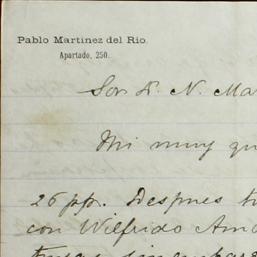 Pablo Martinez del Rio.
Apartado, 250.
Sor D. N. Ma
Mi muy qu
26 pp. Despues
con Wilfrido Amo